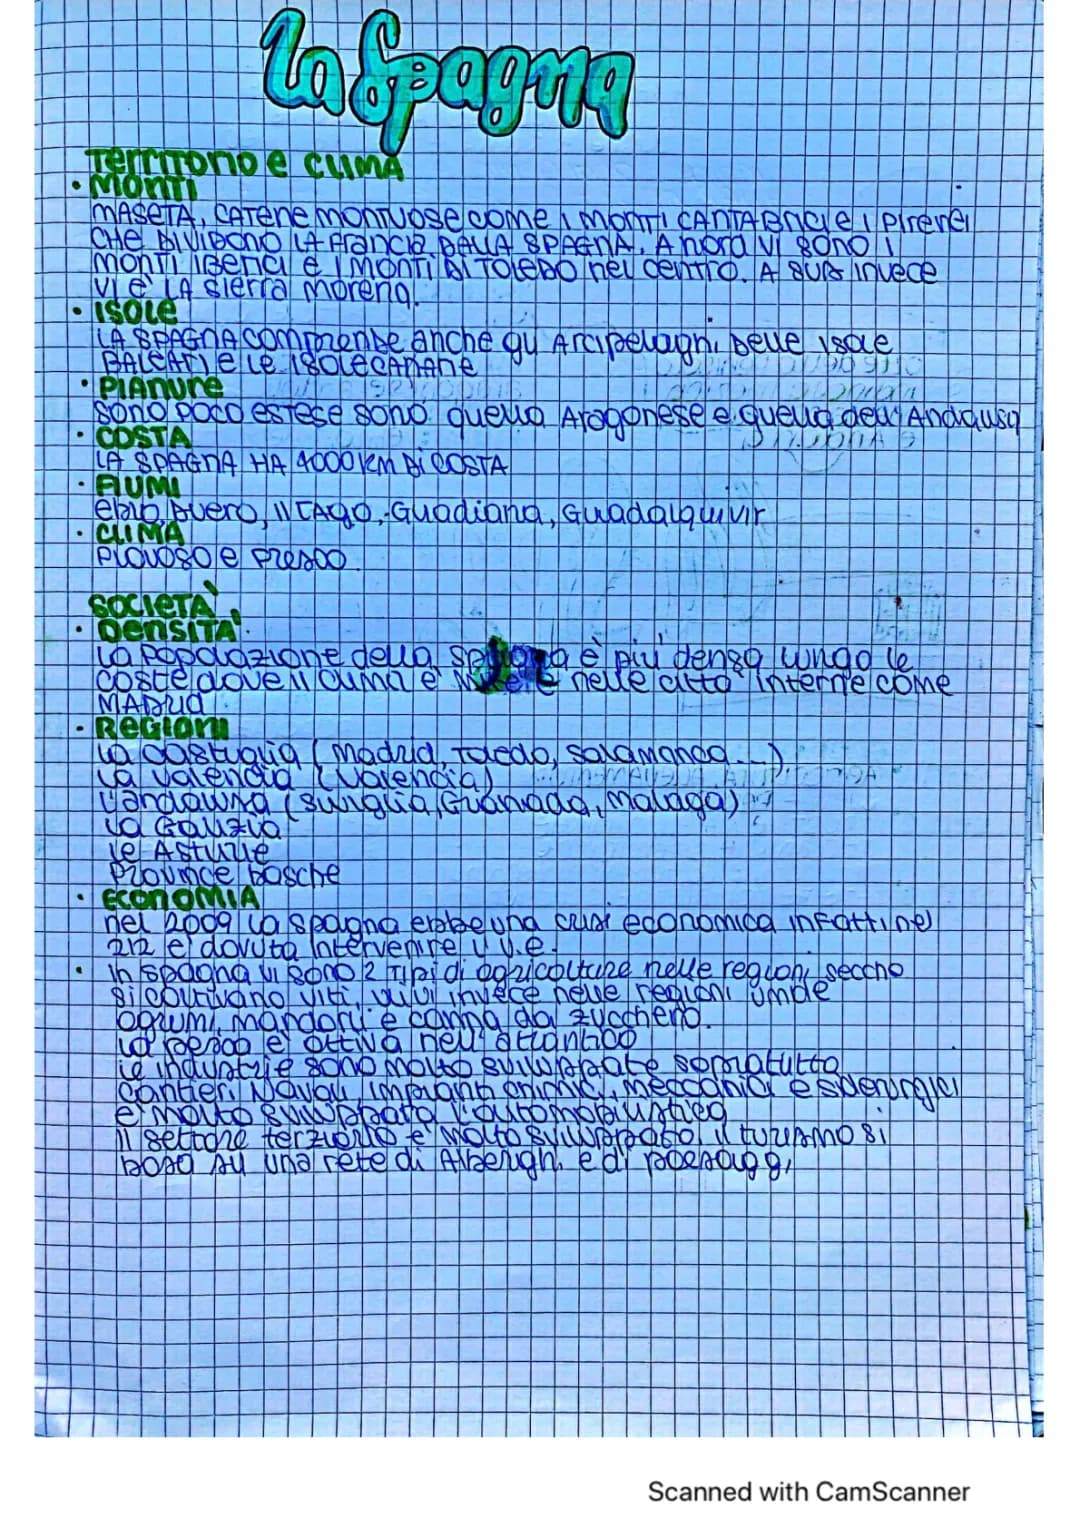 La Spagna
Territorio e CLIMA
• Monti
MASETA, CATENE montuose come i monti CANTABRICI e i Pirenei
CHE DIVIDONO LA Francia DALLA SPAGNA. A nord vi sono i
monti iberici e i monti DI TOLEDO nel centro. A sud invece
vi è LA sierra morena.
• Isole
LA SPAGNA comprende anche gli Arcipelaghi Delle isole
BALEARI e le isole CANARIE
• Pianure
sono poco estese sono quella Aragonese e quella dell'Andalusa
• COSTA
LA SPAGNA HA 4000 KM DI COSTA
• FIUMI
ebro, Duero, il TAgo, Guadiana, Guadalquivir
• CLIMA
PIOVOSO e FRESCO
SOCIETÀ
• Densità
La Popolazione della è più densa lungo le
coste dove il clima è e nelle città interne come
MADRID
• Regioni
La Castiglia (Madrid, Toledo, Salamanca...)
La Valencia (Valencia)
L'andalusia (Siviglia, Granada, Malaga)
La Galizia
le Asturie
Province basche
• ECONOMIA
nel 2009 la Spagna ebbe una crisi economica infatti nel
212 è dovuta intervenire l'U.e.
• In Spagna vi sono 2 Tipi di agricolture nelle regioni secche
si coltivano viti, ulivi invece nelle regioni umide
agrumi, mandorli e canna da zucchero.
La pesca è attiva nell'atlantico
Le industrie sono molto sviluppate sopratutto
cantieri Navali, impianti chimici, meccanici e siderurgici
è molto sviluppata l'automobilistica
Il settore terziario è molto sviluppato, il turismo si
basa su una rete di Alberghi e di paesaggi
Scanned with CamScanner